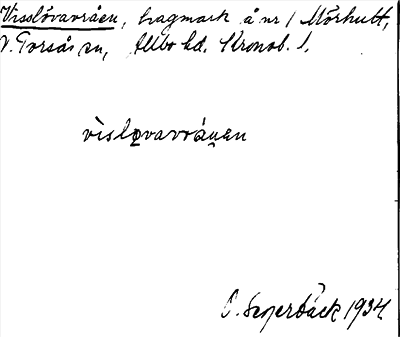 Visslövavråen, hagmark å nr 1 Mörhult,
V. Torsås sn, Allbo hd. Kronob. l.
vislǫvavrànen
O. Segerbäck 1934.